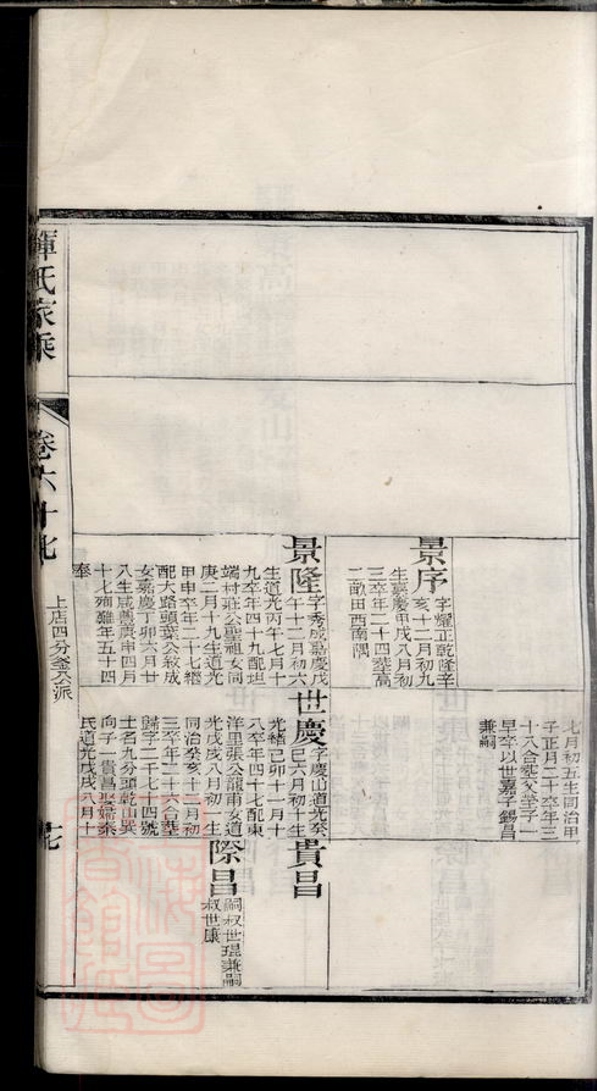 景序
字耀正乾隆辛
亥十二月初九
生嘉慶甲戌八月初
三卒年二十四葬高
二畝田西南隅
景隆
字秀成嘉慶戊
午十二月初六
生道光丙午七月十
九卒年四十九配坦
端村莊公聖祖女同
庚二月十九生道光
甲申卒年二十七繼
配大路頭葉公敘成
女嘉慶丁卯六月廿
八生咸豐庚申四月
十七殉難年五十四
奉
七月初五生同治甲
子正月二十卒年三
十八合葬父塋子一
早卒以世嘉子錫昌
兼嗣
世慶
字慶山道光癸
巳六月初十生
光緒己卯十一月十
八卒年四十七配東
洋里張公龍甫女道
光戊戌八月初一生
同治癸亥十二月初
三卒年二十六合葬
歸字二千七十四號
土名九分頭乾山巽
向子一貴昌娶婦秦
氏道光戊戌八月十
貴昌
際昌
嗣叔世琨兼嗣
叔世康
惲氏家乘
卷六十九
上店四分釜公派